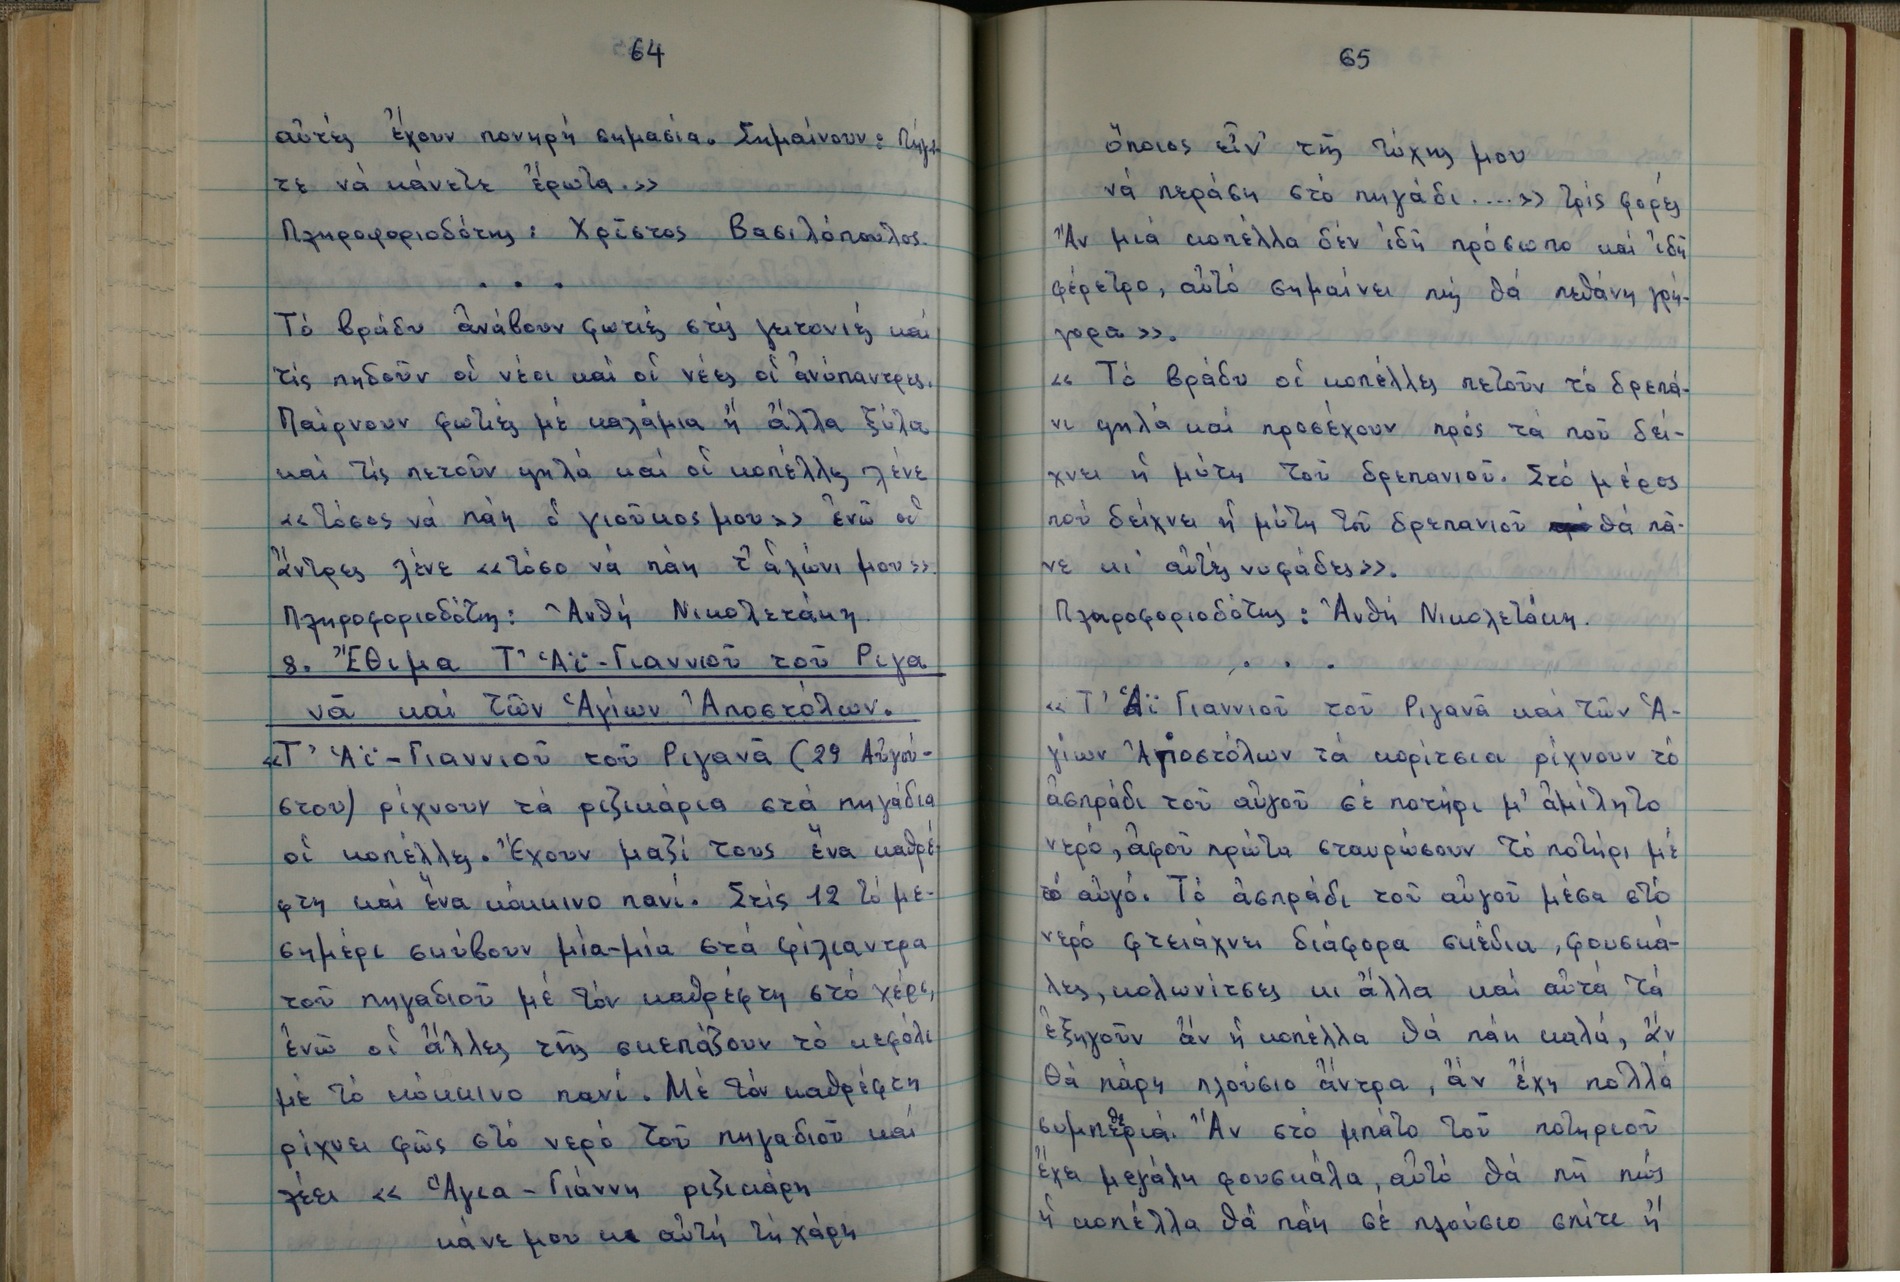 64
αὐτές ἔχουν πονηρή σημασία. Σημαίνουν: Πηγαί-
τε νά κάνετε ἔρωτα.»
Πληροφοριοδότης: Χρῖστος Βασιλόπουλος.
. . .
Τό βράδυ ἀνάβουν φωτιές στίς γειτονιές καί
τίς πηδοῦν οἱ νέοι καί οἱ νέες οἱ ἀνύπαντρες.
Παίρνουν φωτιές μέ καλάμια ἤ ἄλλα ξύλα
καί τίς πετοῦν ψηλά καί οἱ κοπέλλες λένε
«τόσος νά πάη ὁ γιοῦκος μου» ἐνῶ οἱ
ἄντρες λένε «τόσο νά πάη τ' ἁλώνι μου».
Πληροφοριοδότης: Ἀνθή Νικολετάκη.
8. Ἔθιμα Τ' Ἁϊ-Γιαννιοῦ τοῦ Ριγα
νᾶ καί τῶν Ἁγίων Ἀποστόλων.
«Τ' Ἁϊ-Γιαννιοῦ τοῦ Ριγανᾶ (29 Αὐγού-
στου) ρίχνουν τά ριζικάρια στά πηγάδια
οἱ κοπέλλες. Ἔχουν μαζί τους ἕνα καθρέ-
φτη καί ἕνα κόκκινο πανί. Στίς 12 τό με-
σημέρι σκύβουν μία-μία στά φίλιαντρα
τοῦ πηγαδιοῦ μέ τόν καθρέφτη στό χέρι,
ἐνῶ οἱ ἄλλες τῆς σκεπάζουν τό κεφάλι
μέ τό κόκκινο πανί. Μέ τόν καθρέφτη
ρίχνει φῶς στό νερό τοῦ πηγαδιοῦ καί
λέει « Ἅγια-Γιάννη ριζικάρη
κάνε μου κι αὐτή τή χάρη
65
ὅποιος εἶν' τῆς τύχης μου
νά περάση στό πηγάδι....» τρίς φορές
Ἄν μιά κοπέλλα δέν ἰδῆ πρόσωπο καί ἰδῆ
φέρετρο, αὐτό σημαίνει πώς θά πεθάνη γρή-
γορα».
« Τό βράδυ οἱ κοπέλλες πετοῦν τό δρεπά-
νι ψηλά καί προσέχουν πρός τά ποῦ δεί-
χνει ἡ μύτη τοῦ δρεπανιοῦ. Στό μέρος
πού δείχνει ἡ μύτη τοῦ δρεπανιοῦ θά πᾶ-
νε κι αὐτές νυφάδες».
Πληροφοριοδότης: Ἀνθή Νικολετάκη.
. . .
«Τ' Ἁϊ Γιαννιοῦ τοῦ Ριγανᾶ καί τῶν Ἁ-
γίων Ἀποστόλων τά κορίτσια ρίχνουν τό
ἀσπράδι τοῦ αὐγοῦ σέ ποτήρι μ' ἀμίλητο
νερό, ἀφοῦ πρῶτα σταυρώσουν τό ποτήρι μέ
τό αὐγό. Τό ἀσπράδι τοῦ αὐγοῦ μέσα στό
νερό φτειάχνει διάφορα σκέδια, φουσκά-
λες, κολωνίτσες κι ἄλλα καί αὐτά τά
ἐξηγοῦν ἄν ἡ κοπέλλα θά πάη καλά, ἄν
θά πάρη πλούσιο ἄντρα, ἄν ἔχη πολλά
συμπεθεριά. Ἄν στό μπάτο τοῦ ποτηριοῦ
ἔχει μεγάλη φουσκάλα, αὐτό θά πῆ πώς
ἡ κοπέλλα θά πάη σέ πλούσιο σπίτι ἤ